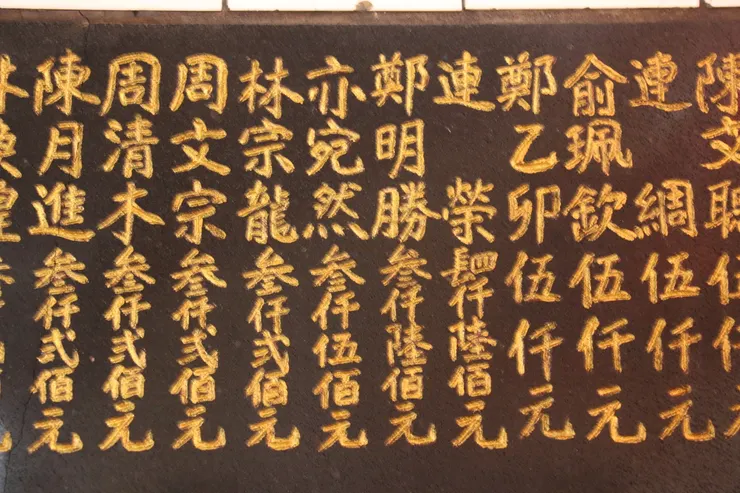 陳文
連綢伍仟元
俞珮欽伍仟元
鄭乙卯伍仟元
連榮䦉仟陸佰元
鄭明勝叁仟陸佰元
亦宛然叁仟伍佰元
林宗龍叁仟弍佰元
周文宗叁仟弍佰元
周清木叁仟弍佰元
陳月進叁仟弍佰元